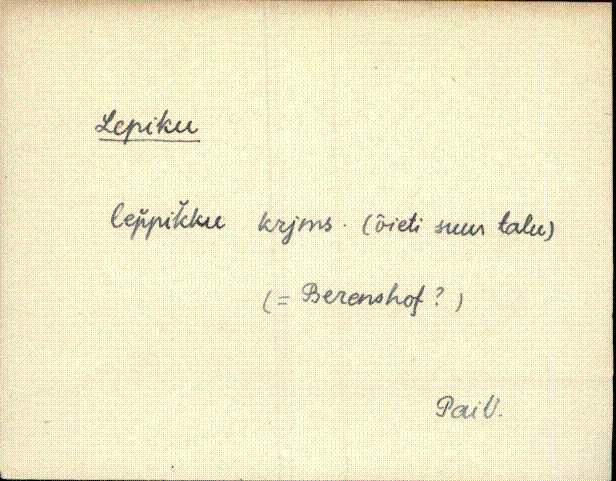 Lepiku
lep̆pik̆ku krjms. (õieti suur talu)
(= Berenshof?)
Pail.